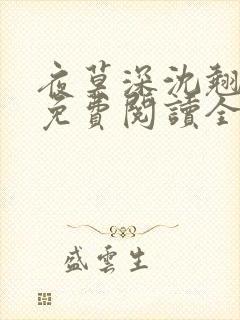 夜莫深沈翘
免費閱讀全
盛雲生